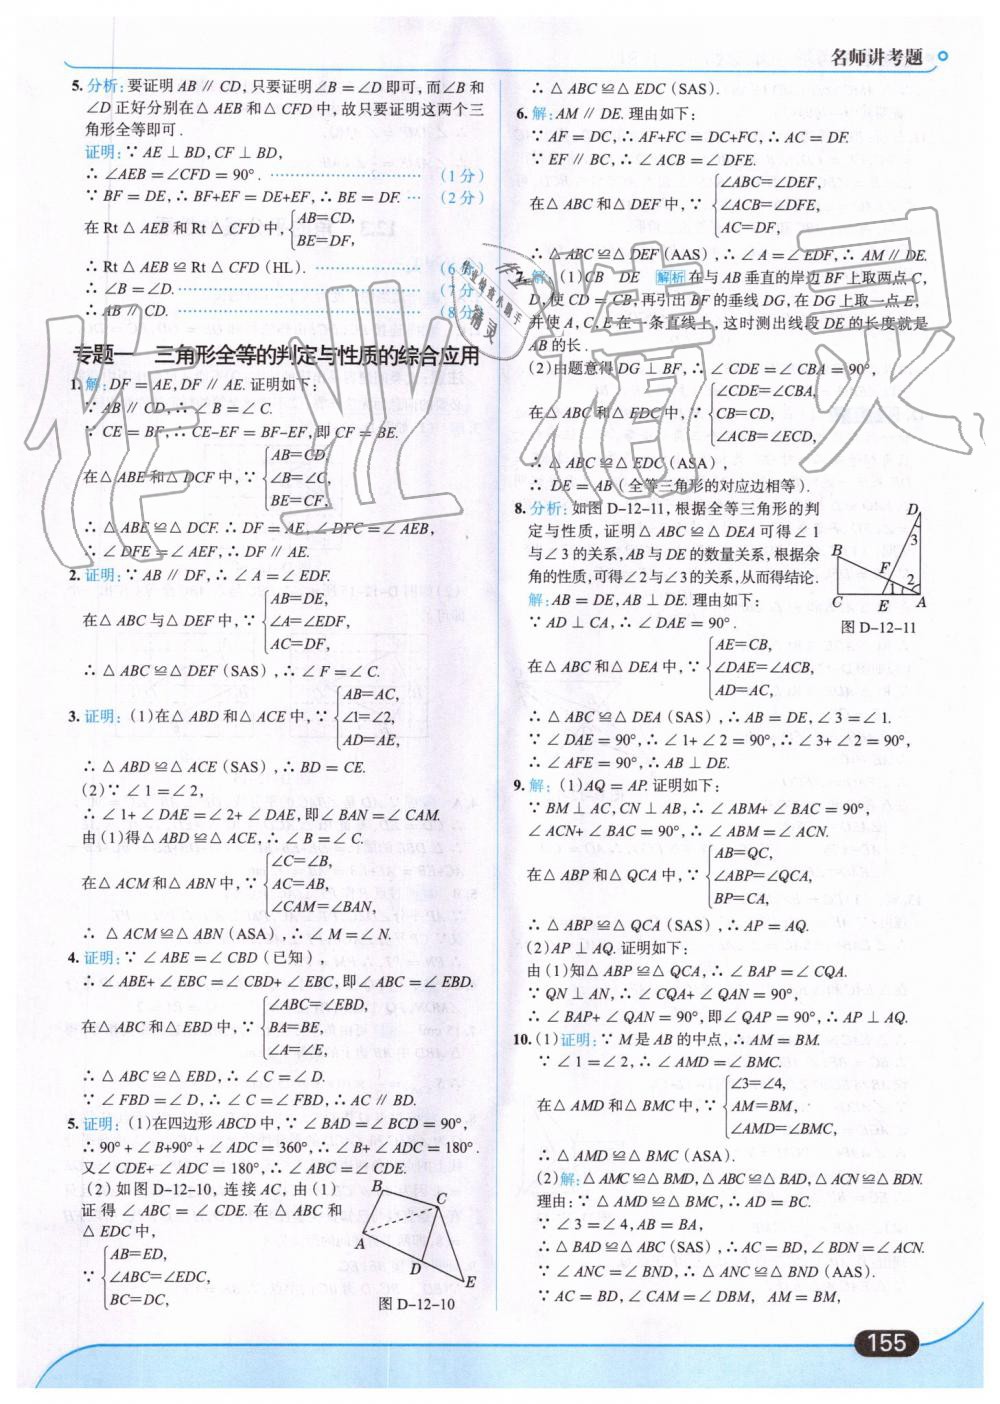 名师讲考题
5. 分析:要证明 AB ∥ CD,只要证明∠B = ∠D 即可,而∠B 和
∠D 正好分别在△ AEB 和△ CFD 中,故只要证明这两个三
角形全等即可.
证明:∵ AE ⊥ BD,CF ⊥ BD,
∴ ∠AEB = ∠CFD = 90°. …………………………(1 分)
∵ BF = DE,∴ BF+EF = DE+EF,∴ BE = DF. …(2 分)
在 Rt △ AEB 和 Rt △ CFD 中,{AB=CD,
BE=DF,
∴ Rt △ AEB ≌ Rt △ CFD (HL). …………………(6 分)
∴ ∠B = ∠D. …………………………………………(7 分)
∴ AB ∥ CD. …………………………………………(8 分)
专题一 三角形全等的判定与性质的综合应用
1. 解:DF = AE,DF ∥ AE. 证明如下:
∵ AB ∥ CD,∴ ∠ B = ∠ C.
∵ CE = BF,∴ CE-EF = BF-EF,即 CF = BE.
在△ ABE 和△ DCF 中,∵ {AB=CD,
∠B=∠C,
BE=CF,
∴ △ ABE ≌ △ DCF. ∴ DF = AE,∠ DFC = ∠ AEB,
∴ ∠ DFE = ∠ AEF,∴ DF ∥ AE.
2. 证明:∵ AB ∥ DF,∴ ∠ A = ∠ EDF.
在△ ABC 与△ DEF 中,∵ {AB=DE,
∠A=∠EDF,
AC=DF,
∴ △ ABC ≌ △ DEF (SAS) ,∴ ∠ F = ∠ C.
3. 证明:(1)在△ ABD 和△ ACE 中,∵ {AB=AC,
∠1=∠2,
AD=AE,
∴ △ ABD ≌ △ ACE (SAS) ,∴ BD = CE.
(2)∵ ∠ 1 = ∠ 2,
∴ ∠ 1+ ∠ DAE = ∠ 2+ ∠ DAE,即∠ BAN = ∠ CAM.
由(1)得△ ABD ≌ △ ACE,∴ ∠ B = ∠ C.
在△ ACM 和△ ABN 中,∵ {∠C=∠B,
AC=AB,
∠CAM=∠BAN,
∴ △ ACM ≌ △ ABN (ASA) ,∴ ∠ M = ∠ N.
4. 证明:∵ ∠ ABE = ∠ CBD (已知) ,
∴ ∠ ABE+ ∠ EBC = ∠ CBD+ ∠ EBC,即∠ ABC = ∠ EBD.
在△ ABC 和△ EBD 中,∵ {∠ABC=∠EBD,
BA=BE,
∠A=∠E,
∴ △ ABC ≌ △ EBD,∴ ∠ C = ∠ D.
∵ ∠ FBD = ∠ D,∴ ∠ C = ∠ FBD,∴ AC ∥ BD.
5. 证明:(1)在四边形 ABCD 中,∵ ∠ BAD = ∠ BCD = 90°,
∴ 90° + ∠ B+90° + ∠ ADC = 360°,∴ ∠ B+ ∠ ADC = 180°.
又∠ CDE+ ∠ ADC = 180°,∴ ∠ ABC = ∠ CDE.
(2) 如图 D-12-10, 连接 AC, 由 (1)
证得 ∠ ABC = ∠ CDE. 在△ ABC 和
△ EDC 中,
∵ {AB=ED,
∠ABC=∠EDC,
BC=DC,
B
C
A
D
E
图 D-12-10
∴ △ ABC ≌ △ EDC (SAS) .
6. 解:AM ∥ DE. 理由如下:
∵ AF = DC,∴ AF+FC = DC+FC,∴ AC = DF.
∵ EF ∥ BC,∴ ∠ ACB = ∠ DFE.
在△ ABC 和△ DEF 中,∵ {∠ABC=∠DEF,
∠ACB=∠DFE,
AC=DF,
∴ △ ABC ≌ △ DEF (AAS) ,∴ ∠ A = ∠ EDF,∴ AM ∥ DE.
7. 解:(1)CB DE 解析 在与 AB 垂直的岸边 BF 上取两点 C,
D,使 CD = CB,再引出 BF 的垂线 DG,在 DG 上取一点 E,
并使 A,C,E 在一条直线上, 这时测出线段 DE 的长度就是
AB 的长.
(2)由题意得 DG ⊥ BF,∴ ∠ CDE = ∠ CBA = 90°,
在△ ABC 和△ EDC 中,∵ {∠CDE=∠CBA,
CB=CD,
∠ACB=∠ECD,
∴ △ ABC ≌ △ EDC (ASA) ,
∴ DE = AB (全等三角形的对应边相等).
8. 分析:如图 D-12-11,根据全等三角形的判
定与性质,证明△ ABC ≌ △ DEA 可得∠ 1
与∠ 3 的关系,AB 与 DE 的数量关系,根据余
角的性质,可得∠ 2 与∠ 3 的关系,从而得结论.
解:AB = DE,AB ⊥ DE. 理由如下:
∵ AD ⊥ CA,∴ ∠ DAE = 90°.
D
3
B
F
2
1
C
E
A
图 D-12-11
在△ ABC 和△ DEA 中,∵ {AE=CB,
∠DAE=∠ACB,
AD=AC,
∴ △ ABC ≌ △ DEA (SAS) ,∴ AB = DE,∠ 3 = ∠ 1.
∵ ∠ DAE = 90°,∴ ∠ 1+ ∠ 2 = 90°,∴ ∠ 3+ ∠ 2 = 90°,
∴ ∠ AFE = 90°,∴ AB ⊥ DE.
9. 解:(1)AQ = AP. 证明如下:
∵ BM ⊥ AC,CN ⊥ AB,∴ ∠ ABM+ ∠ BAC = 90°,
∠ ACN+ ∠ BAC = 90°,∴ ∠ ABM = ∠ ACN.
在△ ABP 和△ QCA 中,∵ {AB=QC,
∠ABP=∠QCA,
BP=CA,
∴ △ ABP ≌ △ QCA (SAS) ,∴ AP = AQ.
(2)AP ⊥ AQ. 证明如下:
由(1)知△ ABP ≌ △ QCA,∴ ∠ BAP = ∠ CQA.
∵ QN ⊥ AN,∴ ∠ CQA+ ∠ QAN = 90°,
∴ ∠ BAP+ ∠ QAN = 90°,即∠ QAP = 90°,∴ AP ⊥ AQ.
10. (1)证明:∵ M 是 AB 的中点,∴ AM = BM.
∵ ∠ 1 = ∠ 2,∴ ∠ AMD = ∠ BMC.
在△ AMD 和△ BMC 中,∵ {∠3=∠4,
AM=BM,
∠AMD=∠BMC,
∴ △ AMD ≌ △ BMC (ASA) .
(2)解:△ AMC ≌ △ BMD,△ ABC ≌ △ BAD,△ ACN ≌ △ BDN.
理由:∵ △ AMD ≌ △ BMC,∴ AD = BC.
∵ ∠ 3 = ∠ 4,AB = BA,
∴ △ BAD ≌ △ ABC (SAS) ,∴ AC = BD,∠ BDN = ∠ ACN.
∵ ∠ ANC = ∠ BND,∴ △ ANC ≌ △ BND (AAS).
∵ AC = BD,∠ CAM = ∠ DBM, AM = BM,
155
作业精灵
作业检查小助手
精灵